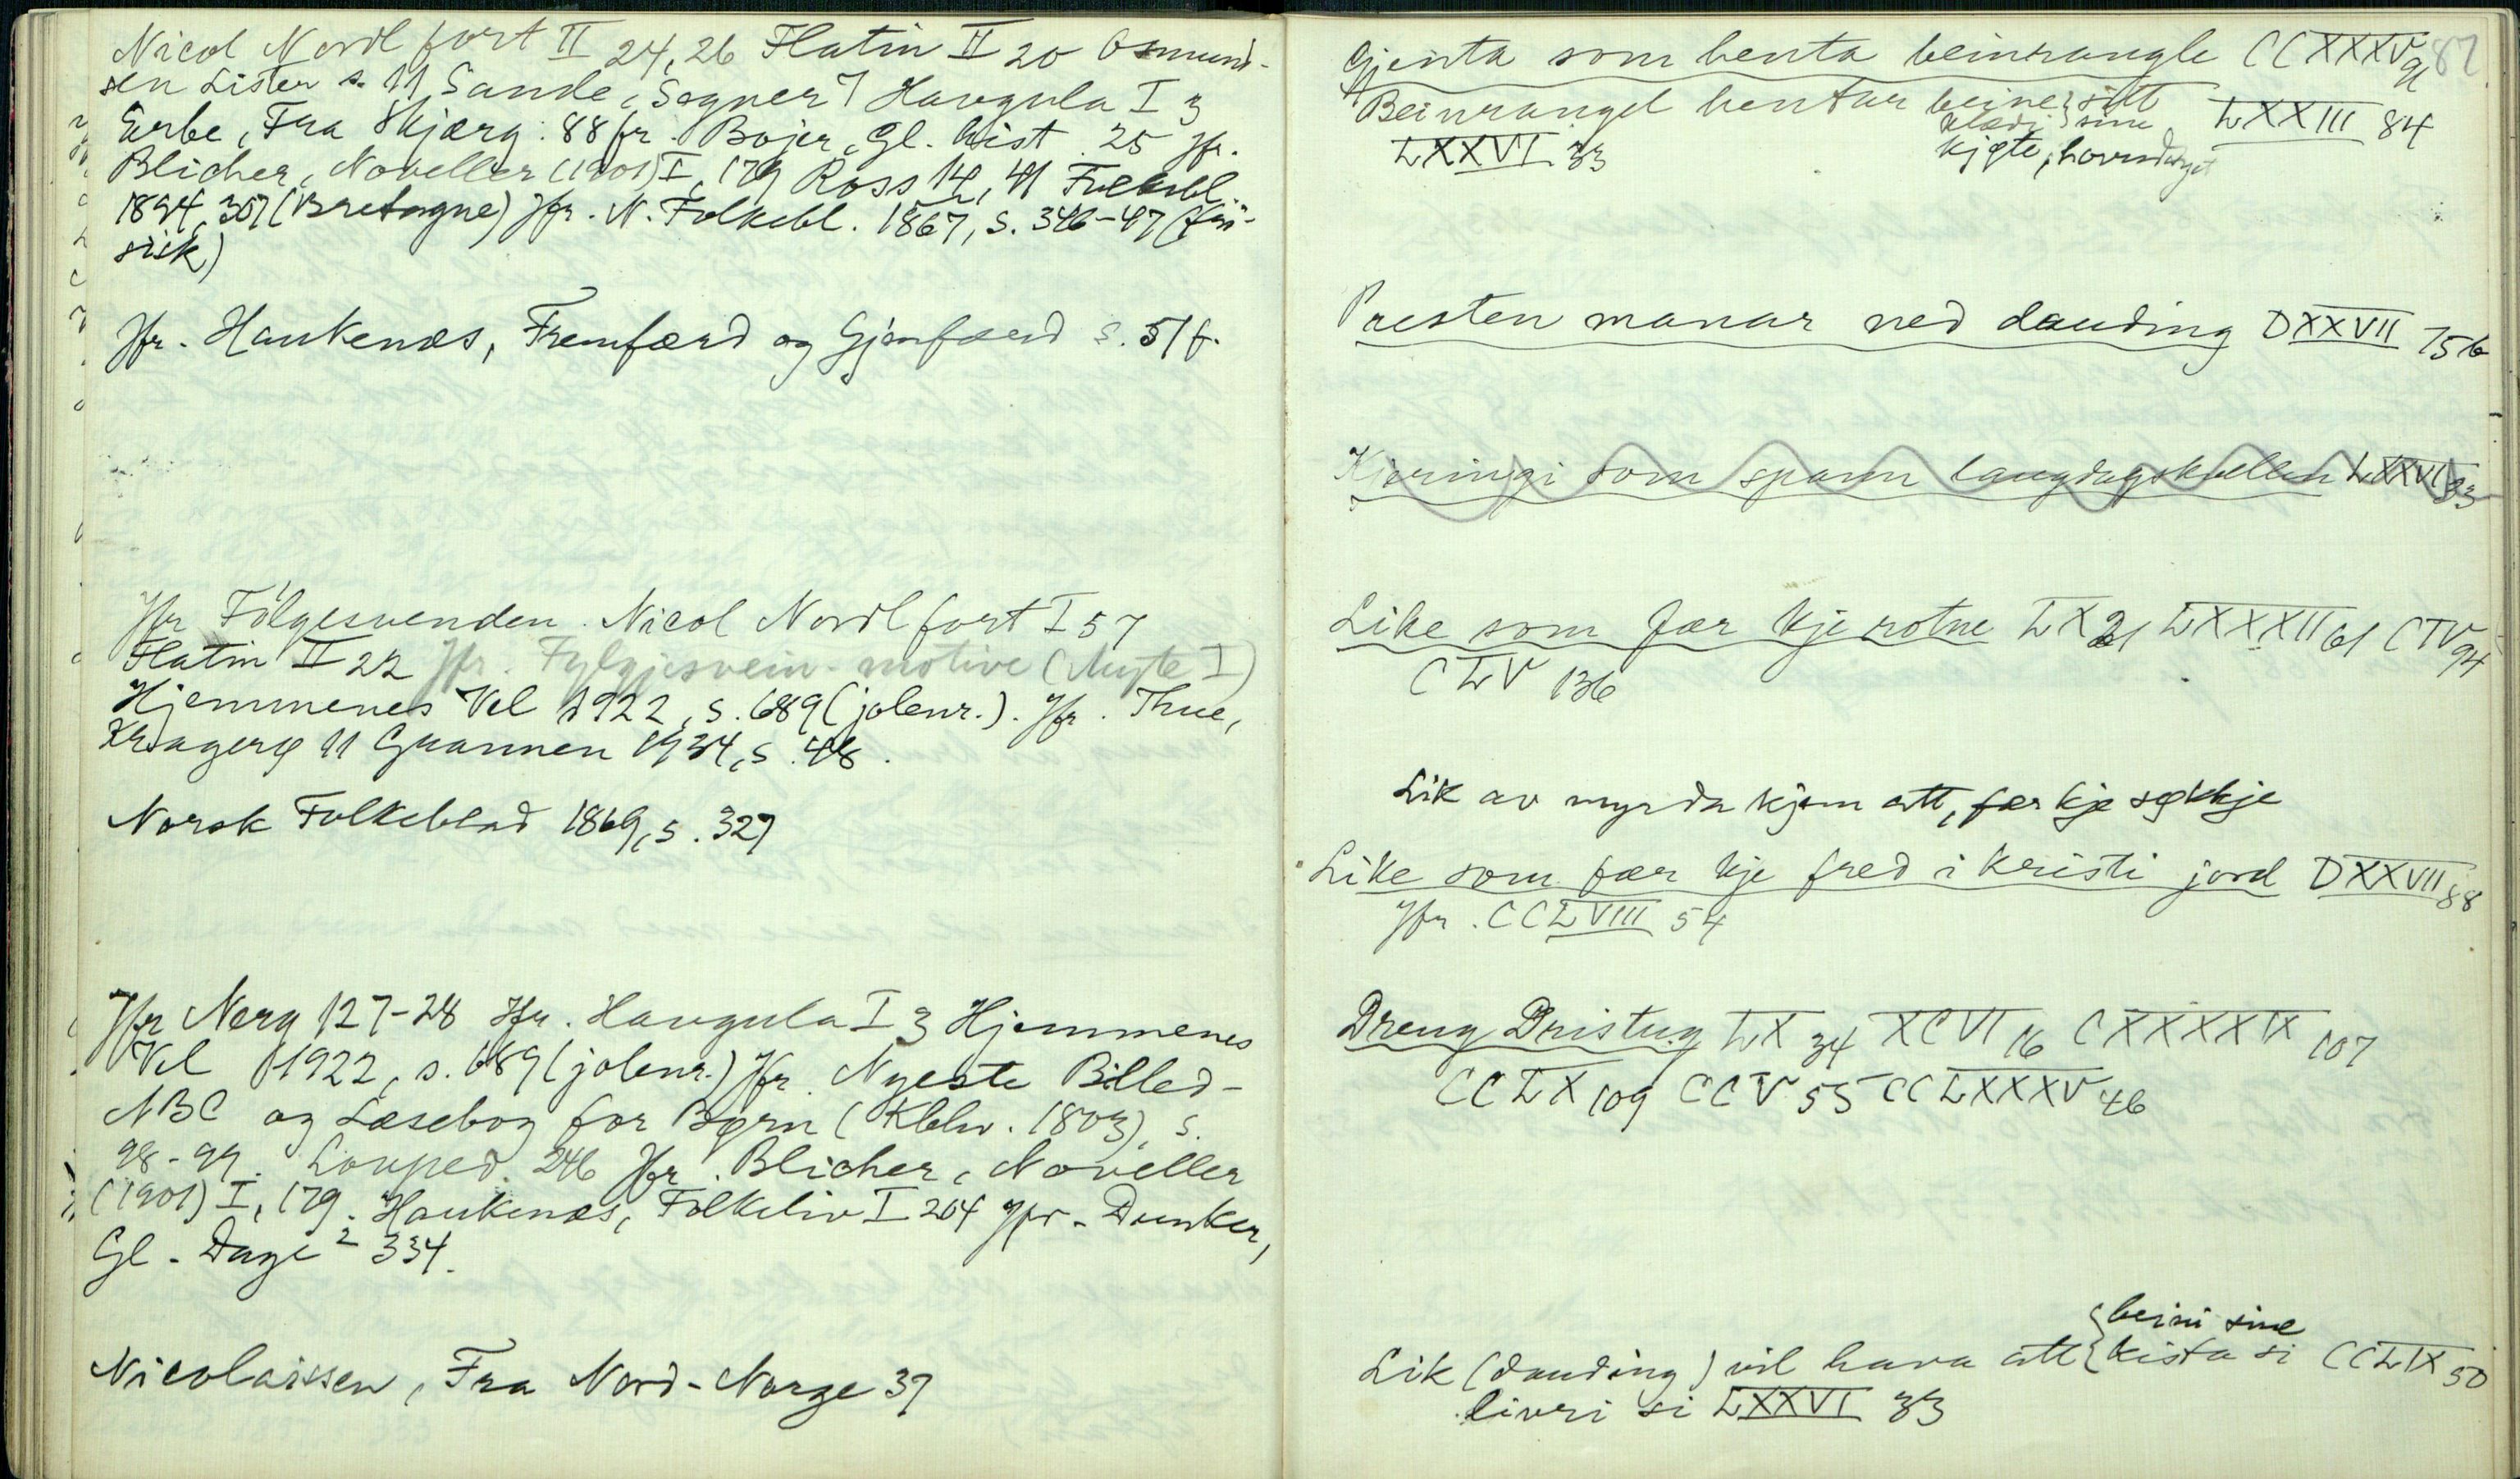 Nicol Nordl fort II 24, 26 Flatin II 20 Osmund-
sen Lister s. 11 Sande, Segner 7 Haugula I 3
Erbe, Fra Skjærg: 88 fr. Bojer, Gl. hist. 25 Jfr.
Blicher, Noveller (1901) I, 179 Ross 14, 41 Folkebl.
1894, 307 (Bretagne) Jfr. N. Folkebl. 1867, s. 346-47 (fin-
sisk)
Jfr. Haukenæs, Fremfærd og Gjenfærd s. 51 f.
Jfr Følgesvenden. Nicol Nordl fort I 57
Flatin II 22 Jfr. Fylgjesvein-motive (Myte I)
Hjemmenes Vel 1922, s. 689 (jolenr.). Jfr. Thue,
Kragerø 11 Grannen 1934, s. 48.
Norsk Folkeblad 1869, s. 327
Jfr Nerg 127-28 Jfr. Haugula I 3 Hjemmenes
Vel 1922, s. 689 (jolenr.) Jfr. Nyeste Billed-
ABC og Læsebog for Børn (Kbhv. 1803), s.
98-99. Louped. 246 Jfr. Blicher, Noveller
(1901) I, 179. Haukenæs, Folkeliv I 204 Jfr. Dunker,
Gl. Dage² 334.
Nicolaissen, Fra Nord-Norge 37
87
Gjenta som henta beinrangle CCXXXV 91
Beinrangel hentar beine sitt LXXIII 84
klædi sine
kjøte, hovudet
LXXVI 33
Presten manar ned dauding DXXVII 156
Kjeringi som spann laugdagskvellen LXXVI 33
Like som fær kje rotne LX 21 LXXXII 61 CIV 94
CLV 136
Lik av myrda kjem att, fær kje søkkje
Like som fær kje fred i kristi jord DXXVII 88
Jfr. CCLVIII 54
Dreng Dristug LX 34 XCVI 16 CXXXXIX 107
CCLX 109 CCV 55 CCLXXXV 46
beini sine
Lik (dauding) vil hava att kista si CCLIX 50
livri si LXXVI 33